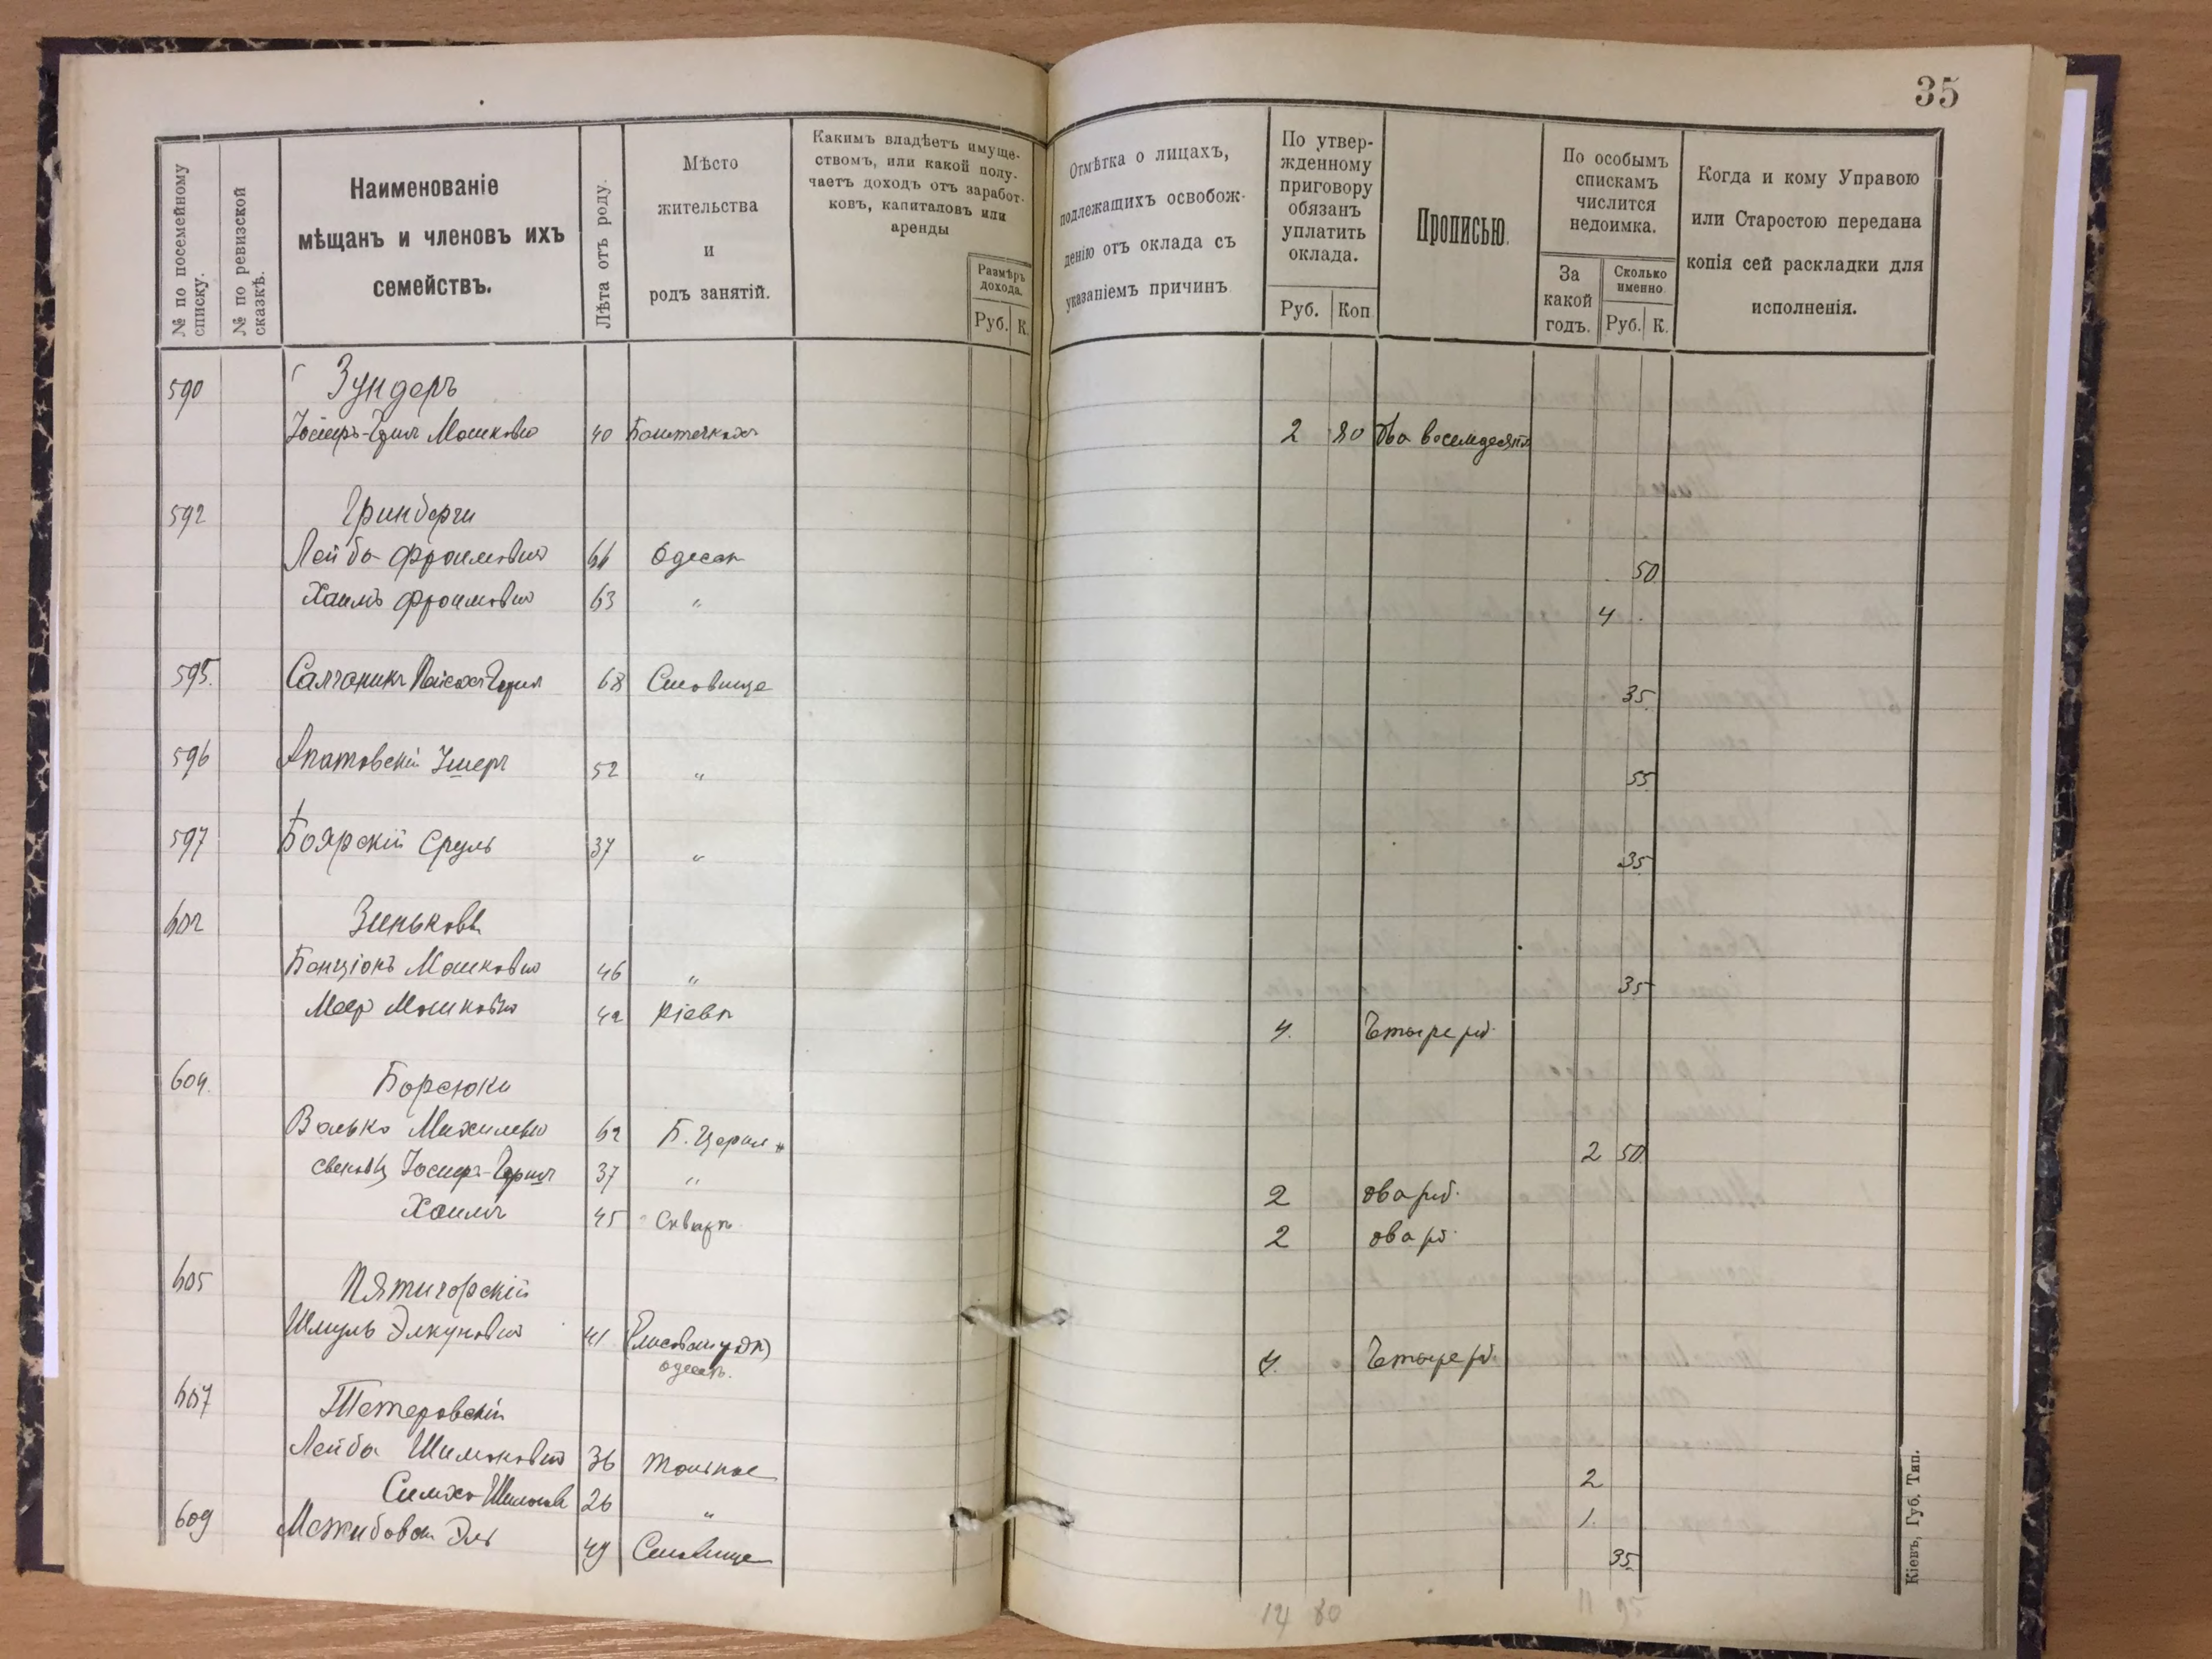 35
№ по посемейному списку.
№ по ревизской сказкѣ.
Наименованіе
мѣщанъ и членовъ ихъ
семействъ.
Лѣта отъ роду.
Мѣсто
жительства
и
родъ занятій.
Какимъ владѣетъ имуще-
ствомъ, или какой полу-
чаетъ доходъ отъ заработ-
ковъ, капиталовъ или
аренды
Размѣръ
дохода.
Руб. К.
Отмѣтка о лицахъ,
подлежащихъ освобож-
денію отъ оклада съ
указаніемъ причинъ
По утвер-
жденному
приговору
обязанъ
уплатить
оклада.
Руб. Коп
Прописью.
По особымъ
спискамъ
числится
недоимка.
За
какой
годъ.
Сколько
именно
Руб. К.
Когда и кому Управою
или Старостою передана
копія сей раскладки для
исполненія.
590 Зундеръ
Мошковъ 40 2 80 два восемдесятъ
592 Гринберги
Лейба Фроимовъ 61 Одесса 50
Хаимъ Фроимовъ 63 " 4
595. 68 35.
596 52 " 55
597 Боярскій Сруль 37 " 35
602 Зиньковы
Бенціонъ Мошковъ 46 " 35
Меер Мошковъ 42 Кіевъ 4. Четыре рб.
604. Борсюки
Волько 62 Б. Церковь 2 50
37 " 2 два рб.
Хаимъ 45 Сквира 2 два рб.
605 Пятигорскій
Шмуль 41 4. Четыре рб.
607 Тетеровскій
Лейба Шимоновъ 36 Тальное 2
Симха 26 " 1.
609 49 35
14 80 11 95
Кіевъ, Губ. Тип.